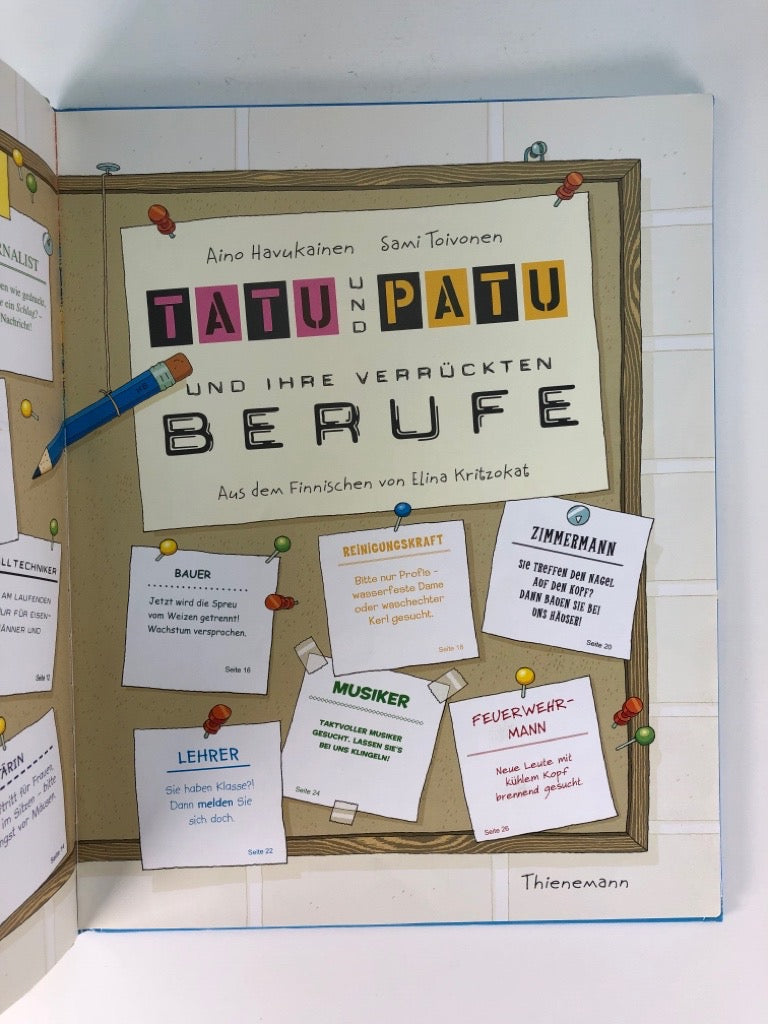 RNALIST
en wie gedruckt,
e ein Schlag? –
Nachricht!
LLTECHNIKER
AM LAUFENDEN
UR FÜR EISEN-
ÄNNER UND
Seite 12
ÄRIN
tritt für Frauen,
im Sitzen – bitte
ngst vor Mäusen.
Seite 14
Aino Havukainen Sami Toivonen
TATU UND PATU
UND IHRE VERRÜCKTEN
BERUFE
Aus dem Finnischen von Elina Kritzokat
BAUER
Jetzt wird die Spreu
vom Weizen getrennt!
Wachstum versprochen.
Seite 16
REINIGUNGSKRAFT
Bitte nur Profis –
wasserfeste Dame
oder waschechter
Kerl gesucht.
Seite 18
ZIMMERMANN
SIE TREFFEN DEN NAGEL
AUF DEN KOPF?
DANN BAUEN SIE BEI
UNS HÄUSER!
Seite 20
LEHRER
Sie haben Klasse?!
Dann melden Sie
sich doch.
Seite 22
MUSIKER
TAKTVOLLER MUSIKER
GESUCHT. LASSEN SIE'S
BEI UNS KLINGELN!
Seite 24
FEUERWEHR-
MANN
Neue Leute mit
kühlem Kopf
brennend gesucht.
Seite 26
Thienemann